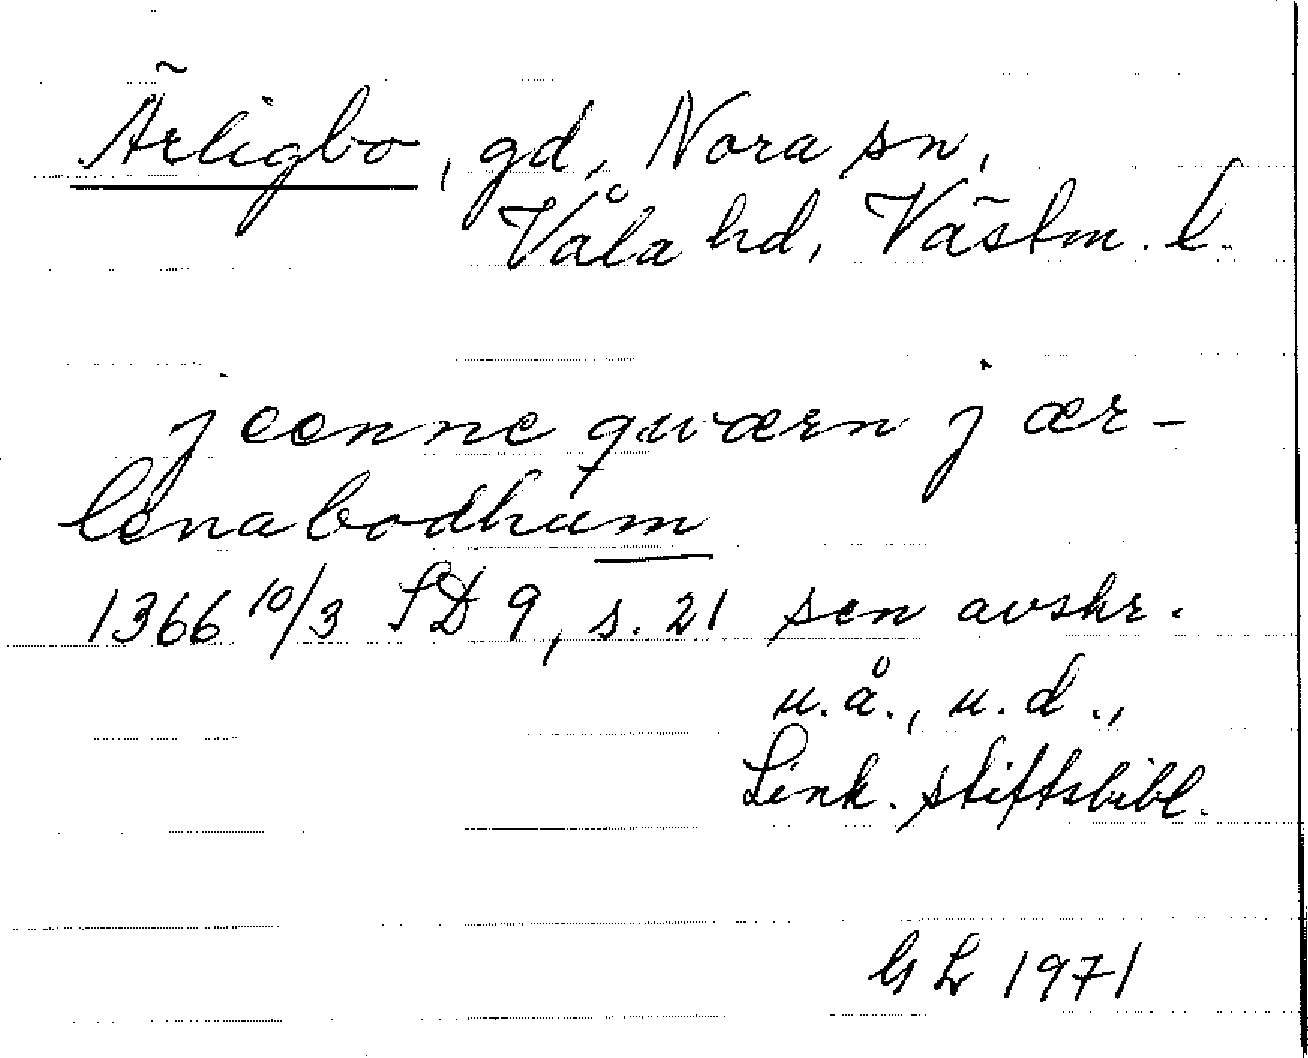 Ärligbo, gd, Nora sn,
Våla hd, Västm. l.
j eenne qwærn j ær-
lenabodhum
1366 10/3 SD 9, s. 21 sen avskr.
u.å., u.d.,
Link. stiftsbibl.
GL 1971